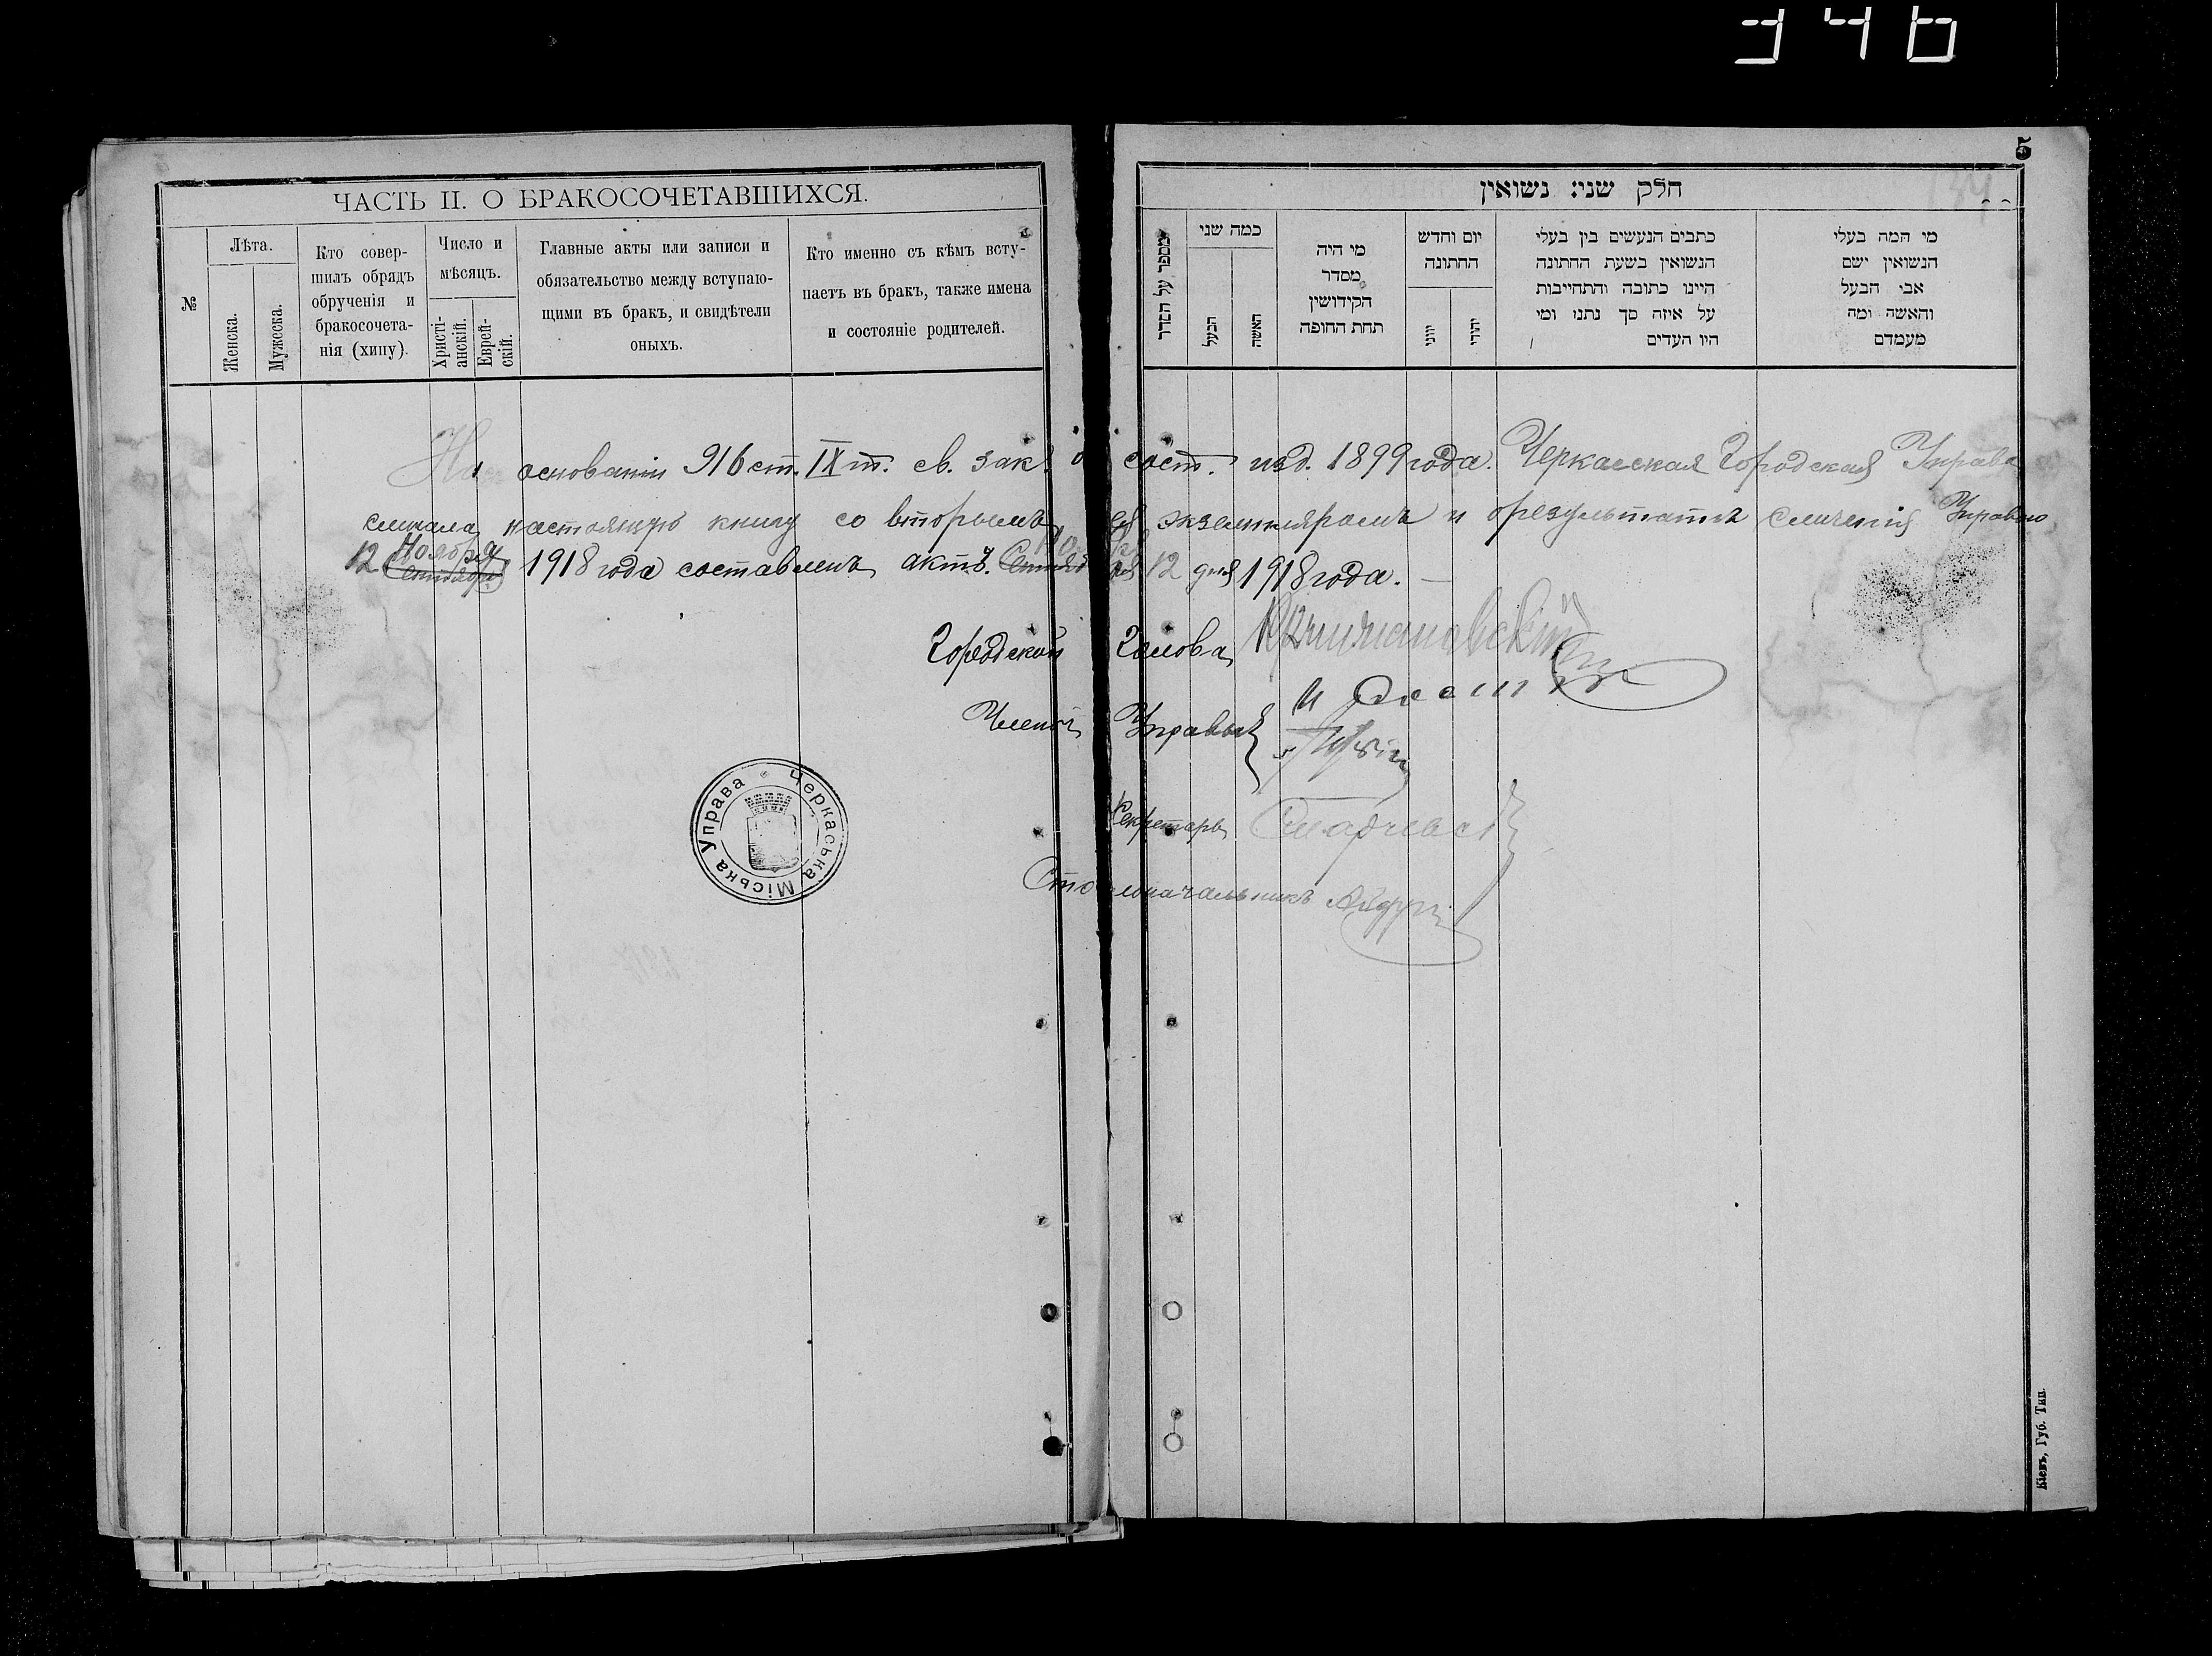 346
5
ЧАСТЬ II. О БРАКОСОЧЕТАВШИХСЯ.
№
Лѣта.
Женска.
Мужеска.
Кто совер-
шилъ обрядъ
обрученія и
бракосочета-
нія (хипу).
Число и
мѣсяцъ.
Христі-
анскій.
Еврей-
скій.
Главные акты или записи и
обязательство между вступаю-
щими въ бракъ, и свидѣтели
оныхъ.
Кто именно съ кѣмъ всту-
паетъ въ бракъ, также имена
и состояніе родителей.
חלק שני: נשואין
מספר על הסדר
כמה שני
הבעל
האשה
מי היה
מסדר
הקידושין
תחת החופה
יום וחדש
החתונה
יווני
יהודי
כתבים הנעשים בין בעלי
הנשואין בשעת החתונה
היינו כתובה והתחייבות
על איזה סך נתנו ומי
היו העדים
מי המה בעלי
הנשואין ושם
אבי הבעל
והאשה ומה
מעמדם
На основаніи 916 ст. IX т. св. зак. о сост. изд. 1899 года. Черкасская Городская Управа
сличала настоящую книгу со вторымъ ея экземпляромъ и о результатѣ сличенія Управою
12 Ноября Сентября 1918 года составленъ актъ. 12 дня 1918 года.
Городской Голова
Члены Управы
Секретарь
Столоначальникъ
Черкаська Міська Управа
Кіевъ, Губ. Тип.